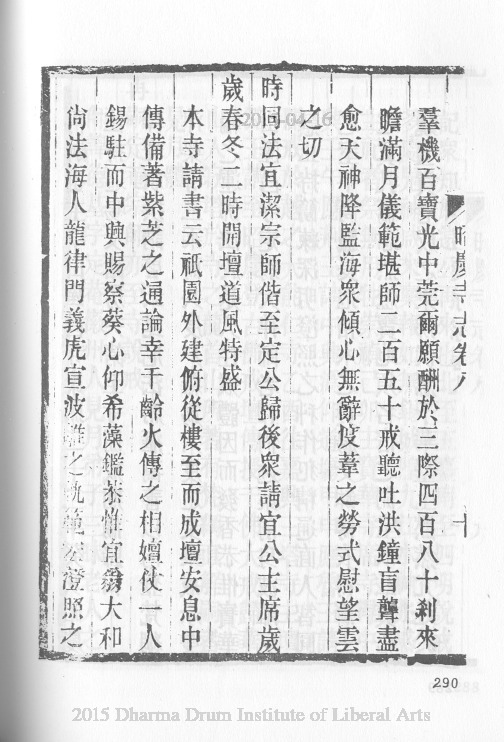 昭慶寺志卷八 十
羣機百寶光中莞爾願酬於三際四百八十剎來
瞻滿月儀範堪師二百五十戒聽吐洪鐘盲聾盡
愈天神降監海衆傾心無辭度羣之勞式慰望雲
之切
時同法宜潔宗師偕至定公歸後衆請宜公主席歲
歲春冬二時開壇道風特盛
本寺請書云祇園外建俯從樓至而成壇安息中
傳備著紫芝之通論幸千齡火傳之相嬗仗一人
錫駐而中興賜察葵心仰希藻鑑恭惟宜翁大和
尚法海人龍律門義虎宣波離之軌範 澄照之
290
2015-04-16
2015 Dharma Drum Institute of Liberal Arts